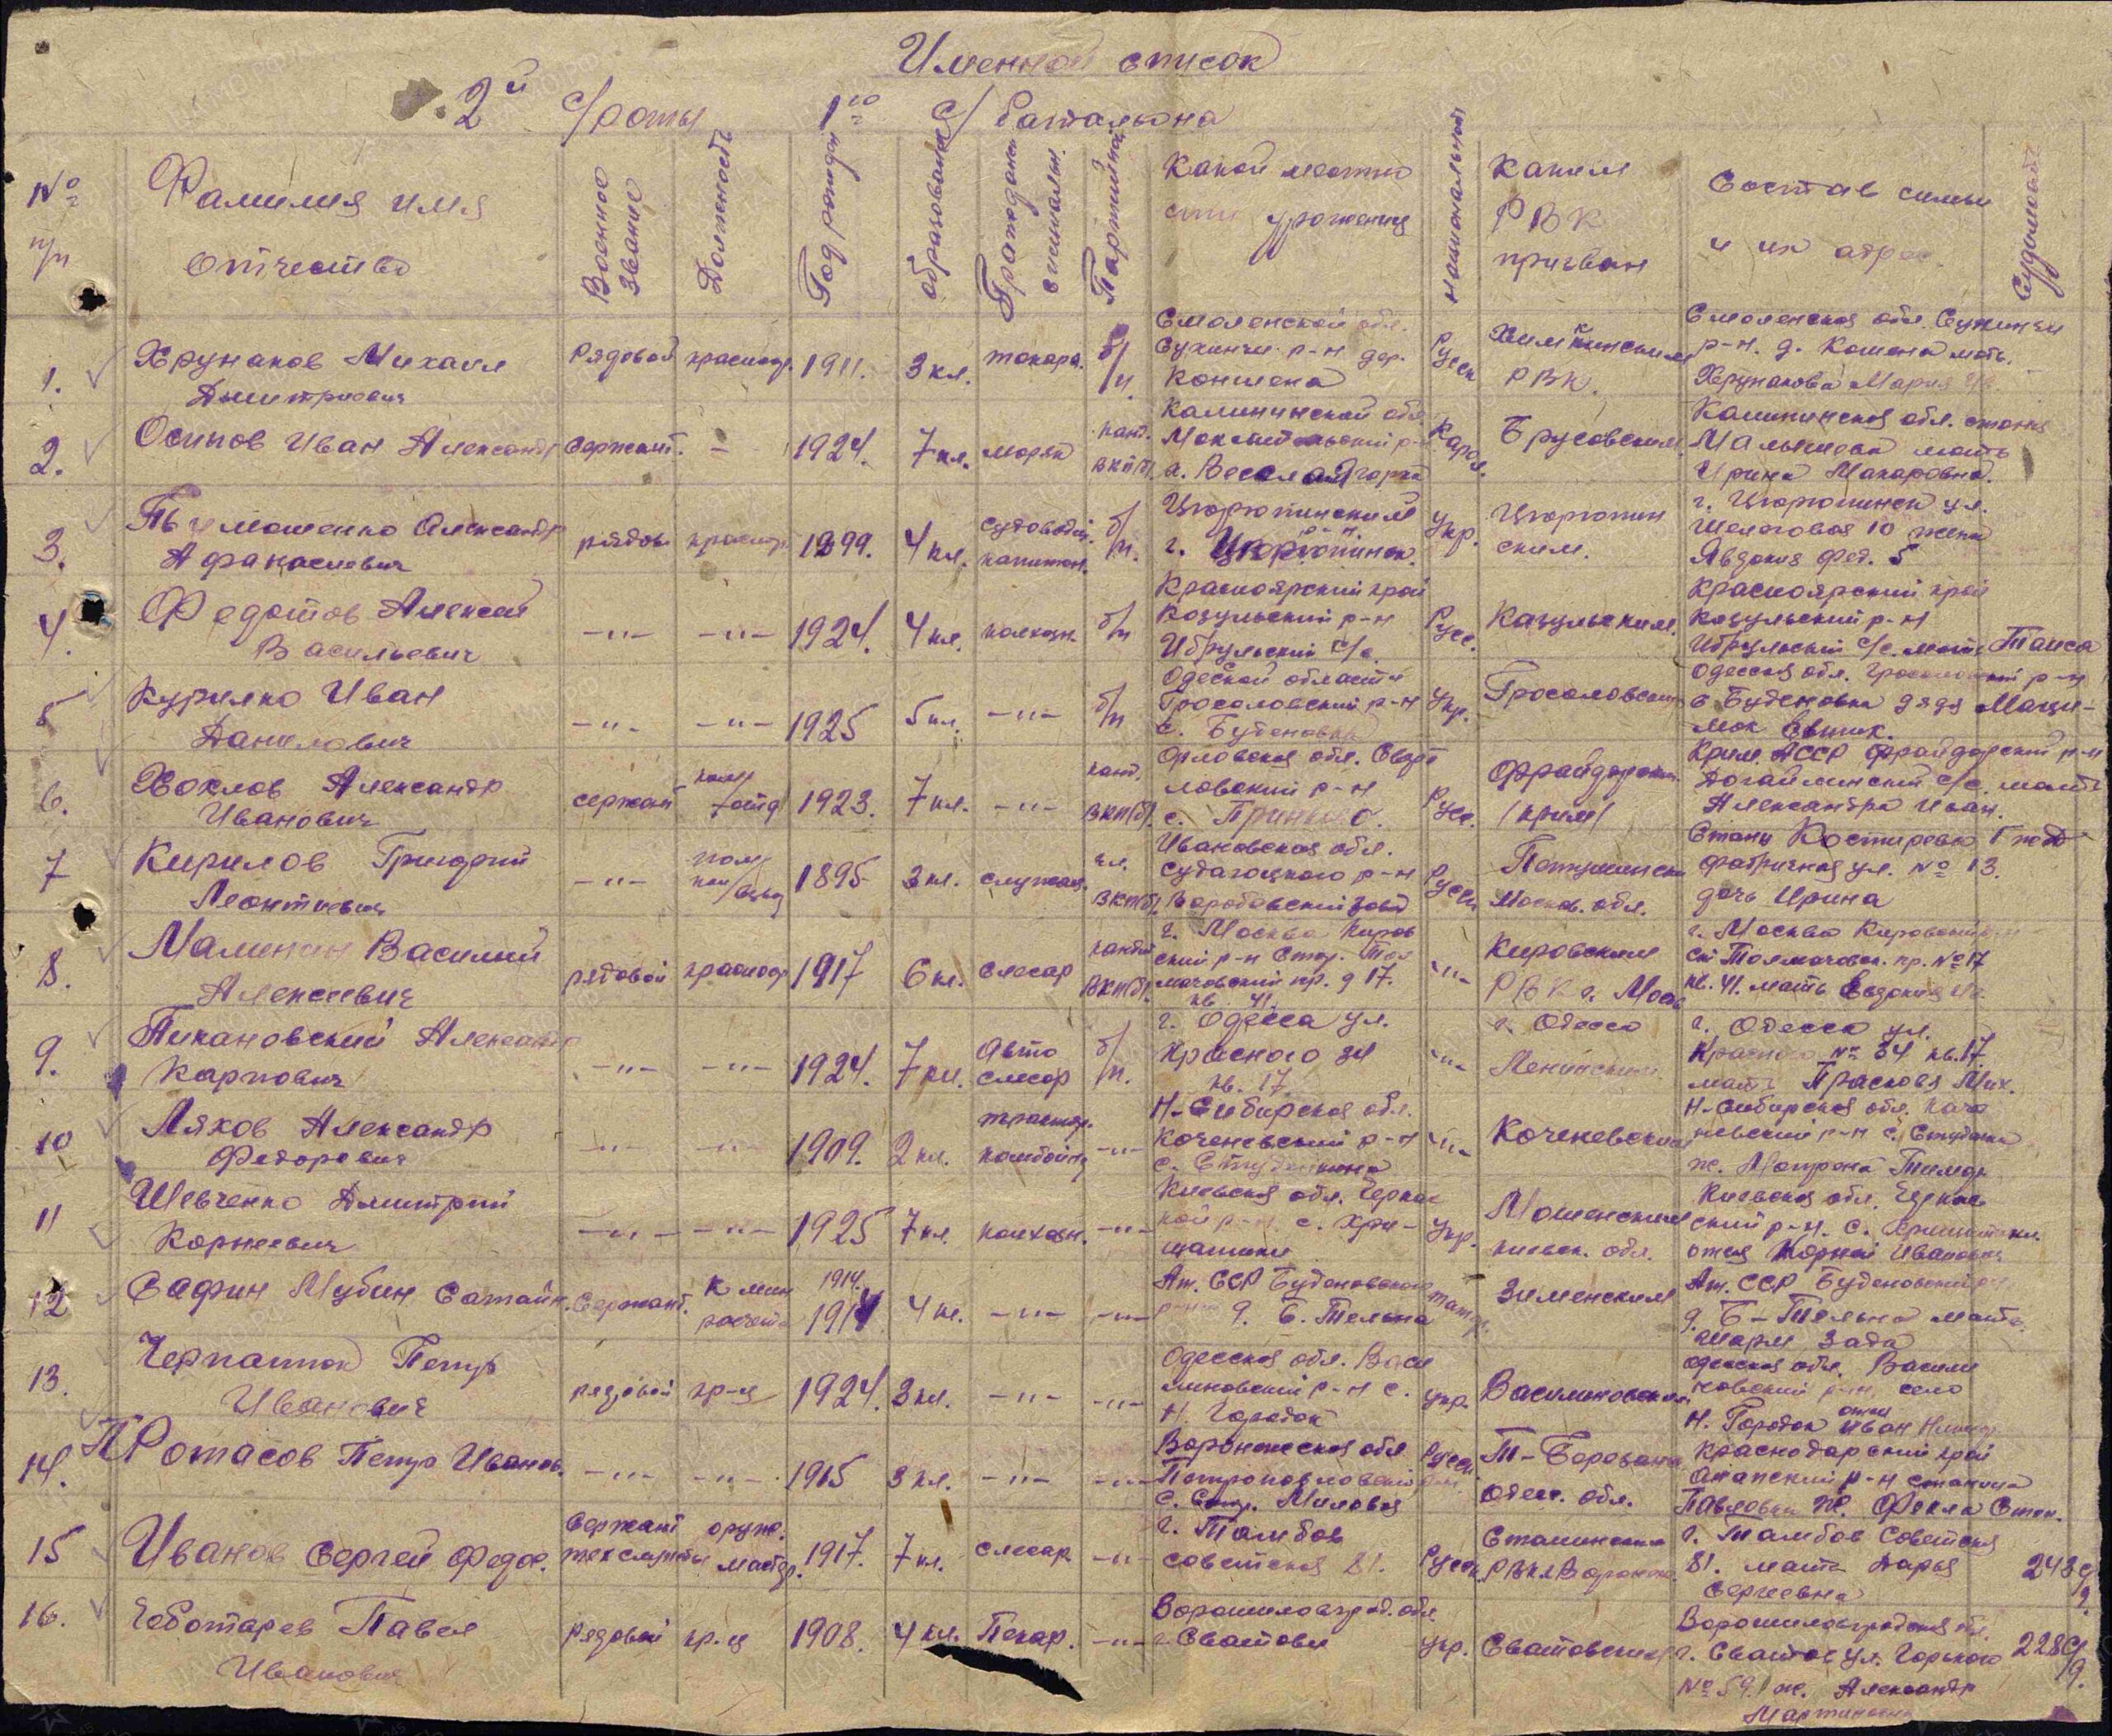 Именной список
2й с/роты 1го с/батальона
№ п/п
Фамилия имя отчество
Военное звание
Должность
Год рожден
образование
Граждан. специальн.
Партийно
Какой местно сти уроженец
национальност
Каким РВК призван
Состав семьи и их адрес
Судимость
1. Хрунаков Михаил Дмитриевич
Рядовой красноар. 1911. 3 кл. токарь б/п
Смоленской обл. Сухинич р-н дер.
Русск Химкинским РВК.
Смоленская обл. Сухинич р-н. д. мать.
Хрунакова Мария
2. Осипов Иван Александр
Сержант. – 1924. 7 кл. моряк канд. ВКП(б).
Калининской обл. р-н д. Веселая горка
Карел. Брусовским
Калининская обл. мать
Ирина Макаровна.
3. Тымошенко Александр Афанасиевич
рядов. красноар. 1899. 4 кл. судоводит. капитан. б/п.
Цюрюпинский р-н г. Цюрюпинск.
Укр. Цюрюпин ским.
г. Цюрюпинск ул. 10 жена
Явдокия Фед. 5
4. Федотов Алексей Васильевич
–"– –"– 1924. 4 кл. колхозн. б/п
Красноярский край Козульский р-н Ибрульский с/с
Русс. Казульским.
Красноярский край Козульский р-н
Ибрульский с/с. мать Таиса
5 Курилко Иван Данилович
–"– –"– 1925 5 кл. –"– б/п
Одеской области Гросоловский р-н с. Буденовка
Укр. Гросоловским
Одесская обл. р-н
с Буденовка дядя
6. Хохлов Александр Иванович
сержант ком/отд 1923. 7 кл. –"– канд. ВКП(б).
Орловская обл. Сверд ловский р-н с.
Русс. Фрайдорским /крим/
Крим. АССР Фрайдорский р-н
с/с. мать
Александра Иван.
7 Кирилов Григорий Леонтиевич
–"– пом/ком/взвод 1895 3 кл. служащ. чл. ВКП(б).
Ивановская обл. Судагоцкого р-н
Русск Петушинск Москов. обл.
Станц Костирево Город
фабричная ул. № 13.
дочь Ирина
8. Малинин Василий Алексеевич
рядовой красноар 1917 6 кл. слесар кандид ВКП(б).
г. Москва Киров ский р-н Стар. Тол мачовский пр. д 17. кв. 41.
–"– Кировским РВК г. Моск
г. Москва Кировский
Ст. Толмачовск. пр. № 17
кв. 41. мать Евдокия
9. Пикановский Александр Карпович
–"– –"– 1924. 7 кл. Авто слесар б/п.
г. Одесса ул. Красного 34 кв. 17.
–"– г. Одесса Ленинским
г. Одесса ул.
Красного № 34 кв. 17.
мать Прасковя Мих.
10 Ляхов Александр Федорович
–"– –"– 1909. 2 кл. трактор. комбайн –"–
Н-Сибирская обл. Коченевский р-н с.
–"– Коченевским
Н-Сибирская обл. Коче
невский р-н с. Студенка
ж. Матрона
11 Шевченко Дмитрий Корнеевич
–"– –"– 1925 7 кл. колхозн. –"–
Киевская обл. Черкас кой р-н. с. Хри– щатики
Укр. Мошенским киевск. обл.
Киевская обл. Черкас
ский р-н. с.
отец Корней Иванович
12 Сафин Мубин
Сержант. К мин расчета 1914. 1914 4 кл. –"– –"–
Ат. ССР Буденовского д. Б. Тельна
татар. Зименским
Ат. ССР Буденовский
д. Б–Тельна мать.
13. Черпаинок Петр Иванович
рядовой кр-ц 1924. 3 кл. –"– –"–
Одесская обл. Васи линовский р-н с. Н. Городок
укр. Василиновским
Одесская обл. Васили
новский р-н, село
Н. Городок отец Иван
14. ПРотасов Петр Иванов.
–"– –"– 1915 3 кл. –"– –"–
Воронежская обл Петропавловский с. Стар. Меловая
Русск Т–Березанск Одесс. обл.
Краснодарский край
Анапский р-н станица
ж. Фекла Степ.
15 Иванов Сергей Федор.
Сержант техслужбы оруж. мастер. 1917. 7 кл. слесар –"–
г. Тамбов советская 81.
Русск. Сталинским РВК г. Воронеж.
г. Тамбов Советская
81. мать Дарья
Сергеевна
248
16. Чеботарев Павел Иванович
Рядовой кр.-ц 1908. 4 кл. Пекар. –"–
Ворошиловград. обл. г. Сватови
укр. Сватовским
Ворошиловградская обл.
г. Сватов ул. Горького
№ 59. ж. Александр
Мартиновна
228